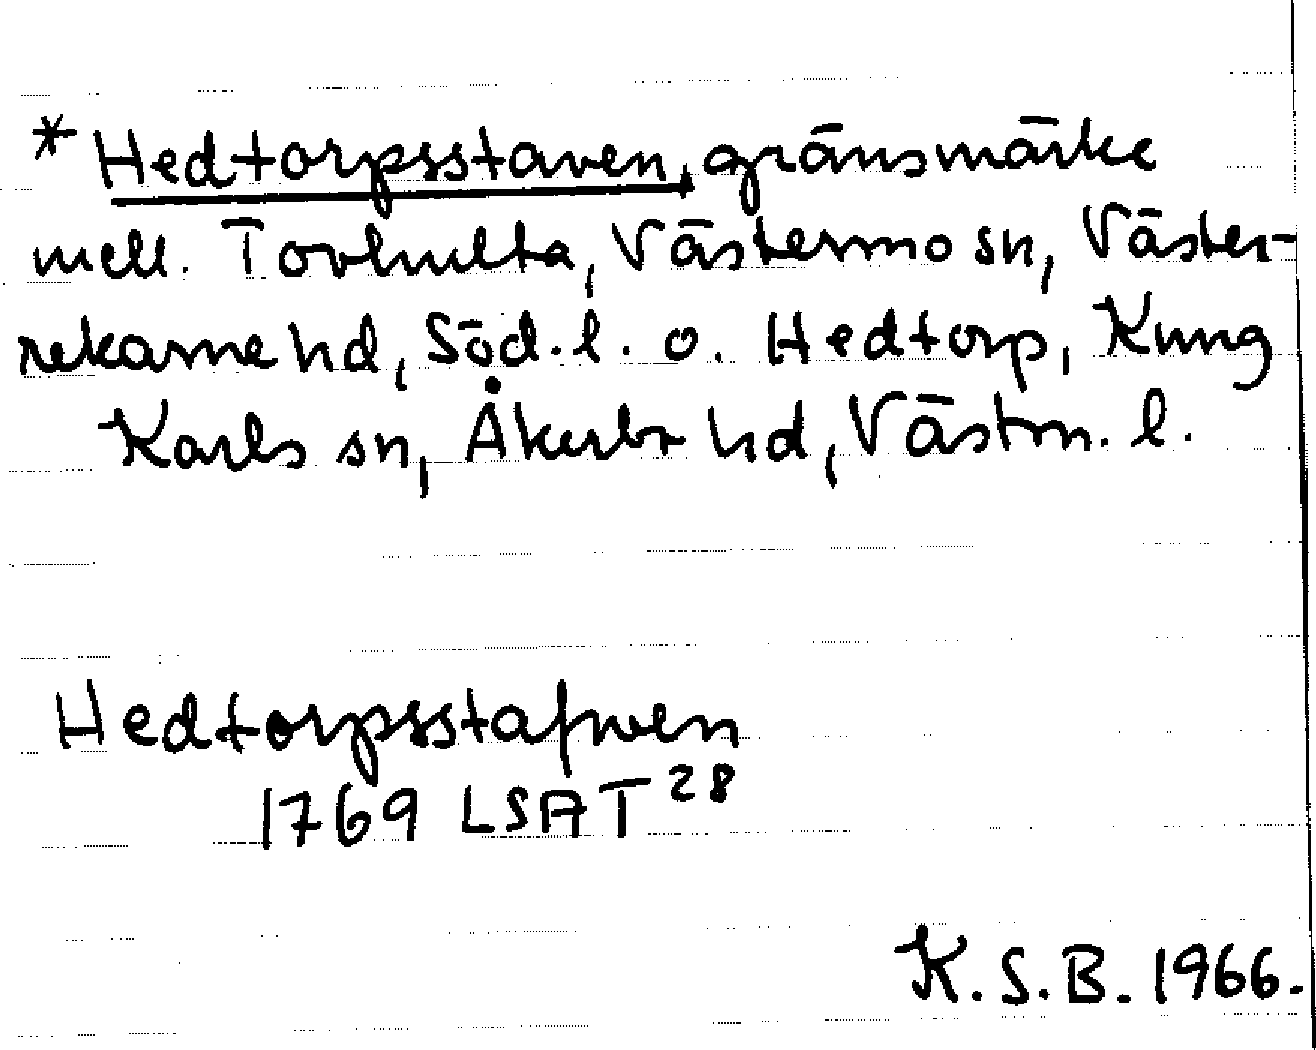 * Hedtorpsstaven, gränsmärke
mell. Tovhulta, Västermo sn, Väster-
rekarne hd, Söd. l. o. Hedtorp, Kung
Karls sn, Åkerbr hd, Västm. l.
Hedtorpsstafwen
1769 LSA T 28
K. S. B. 1966.